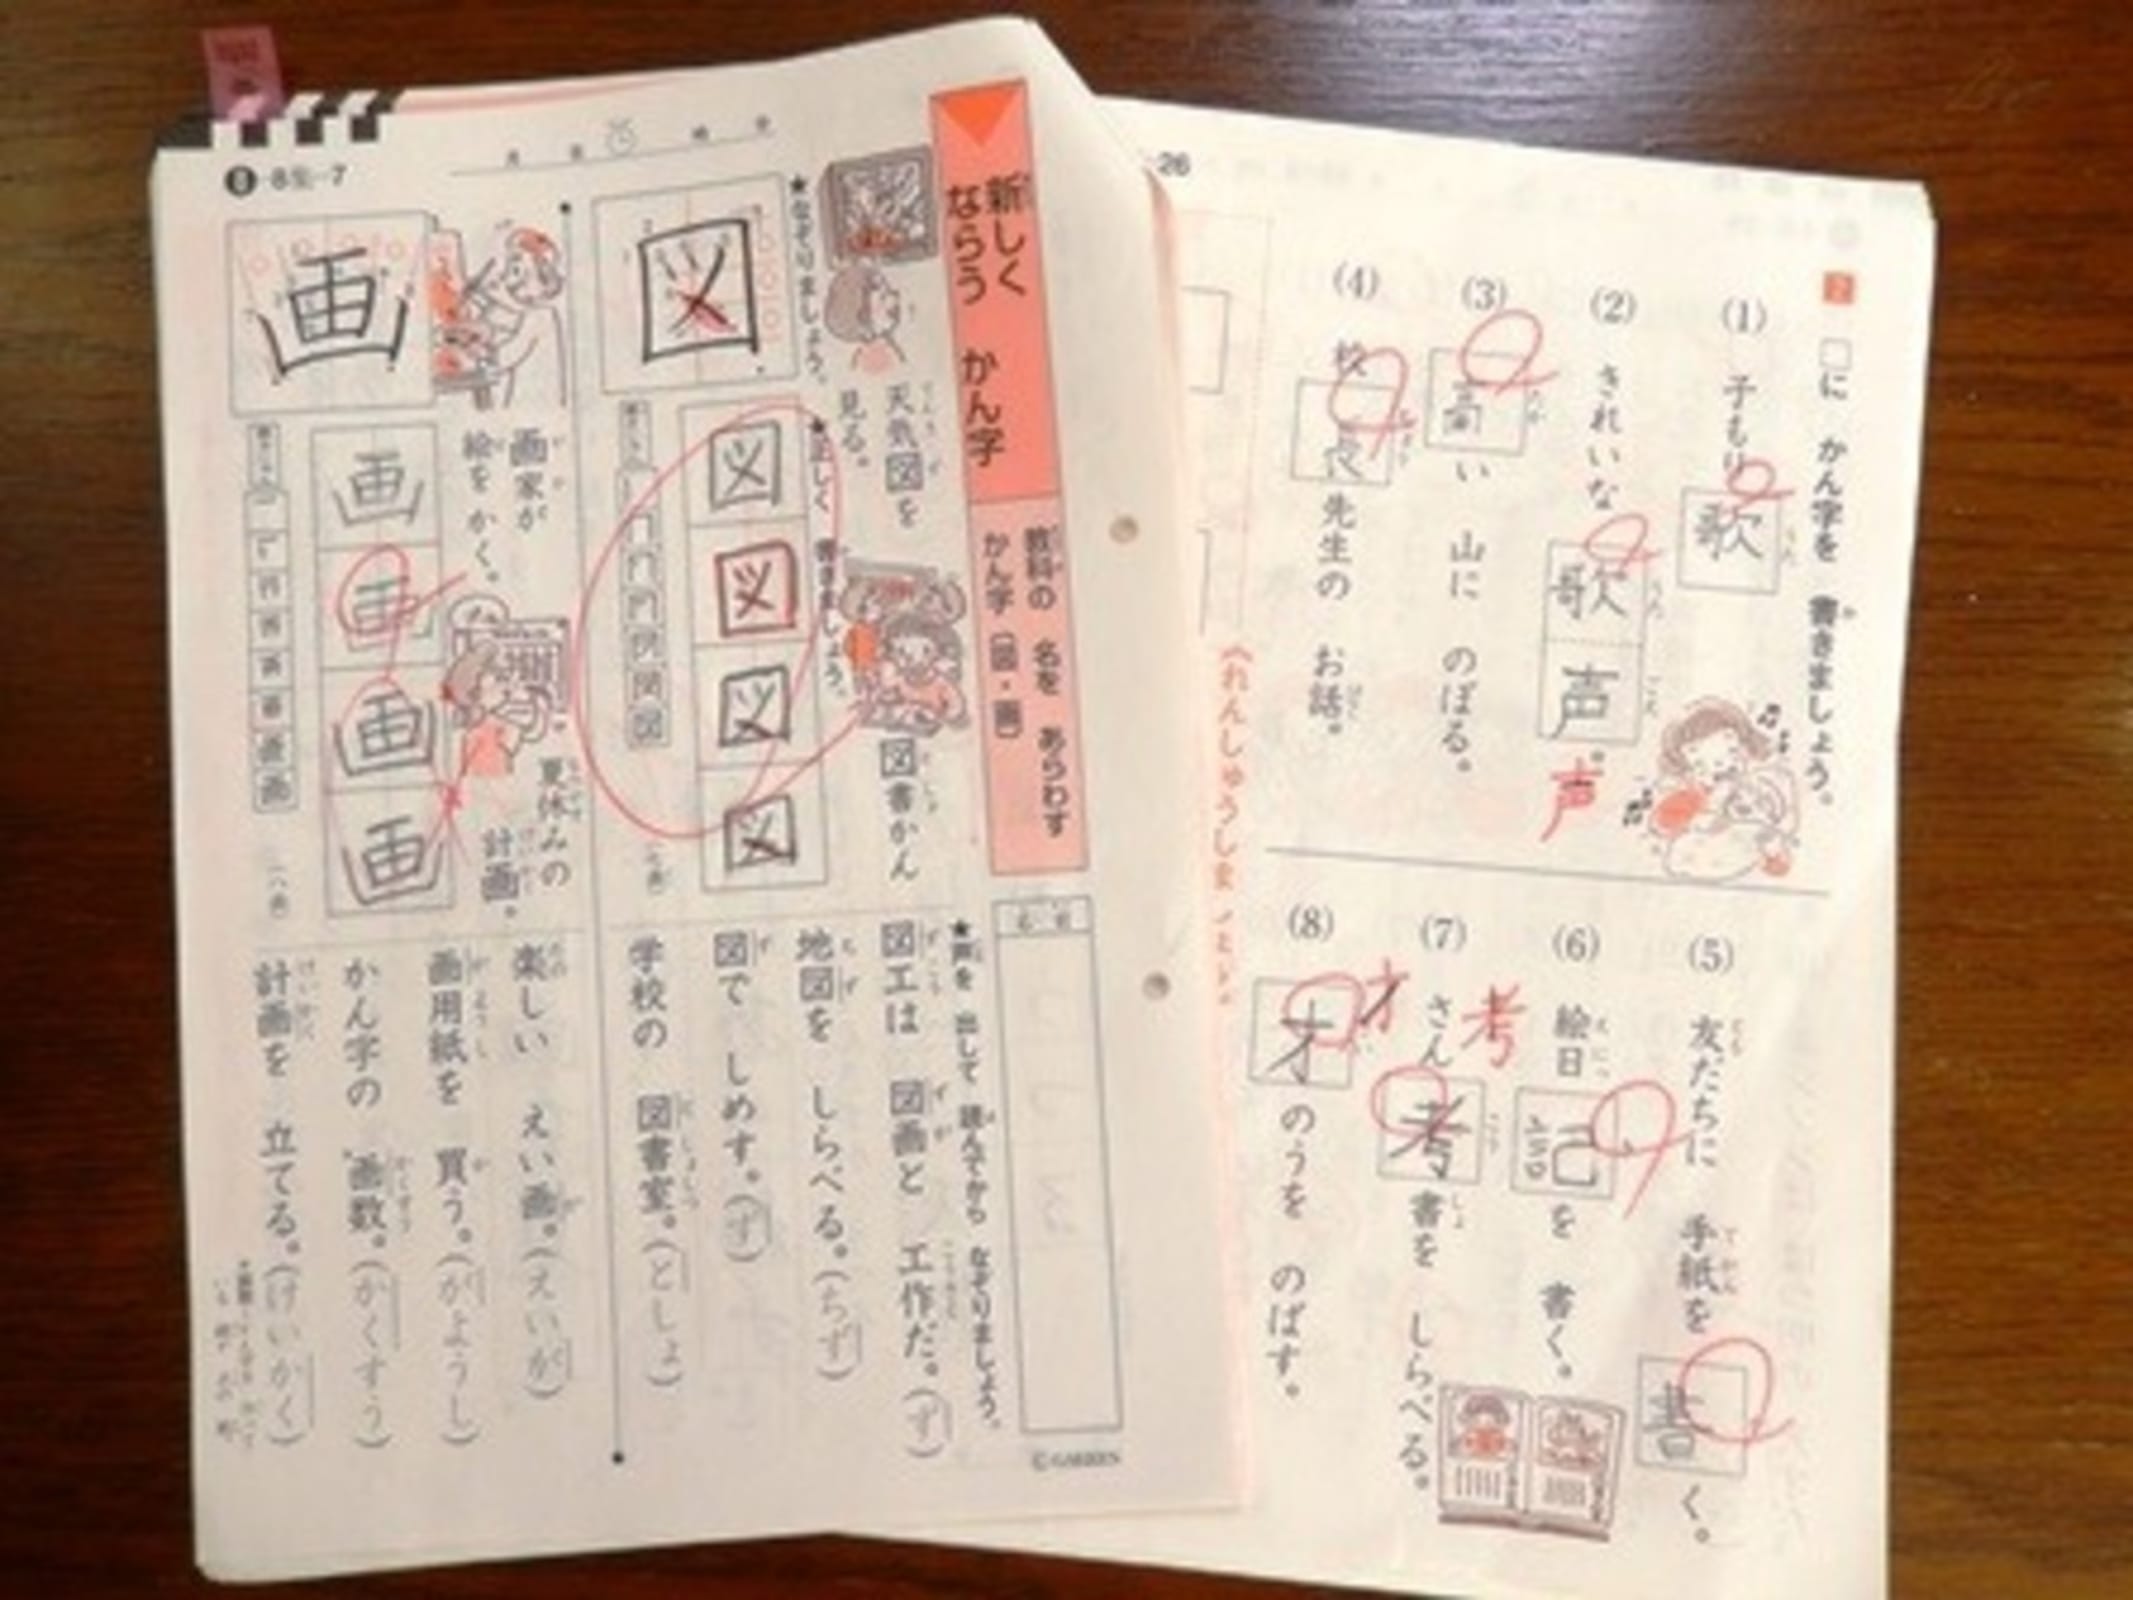 新しく
ならう かん字
教科の 名を あらわす
かん字〔図・画〕
★なぞりましょう。
図
天気図を
見る。
★正しく 書きましょう。
図
図
図
図
図書かん
画
画家が
絵を かく。
画
画
画
画
夏休みの
計画。
★声を 出して 読んでから なぞりましょう。
図工は 図画と 工作だ。(ず)
地図を しらべる。(ちず)
図で しめす。(ず)
学校の 図書室。(としょ)
楽しい えい画。(えいが)
画用紙を 買う。(がようし)
かん字の 画数。(かくすう)
計画を 立てる。(けいかく)
©GAKKEN
26
2 □に かん字を 書きましょう。
(1) 子もり歌
(2) きれいな 歌声。
声
(3) 高い 山に のぼる。
(4) 校長先生の お話。
(5) 友だちに 手紙を 書く。
(6) 絵日記を 書く。
(7) さん考書を しらべる。
考
(8) 才のうを のばす。
才